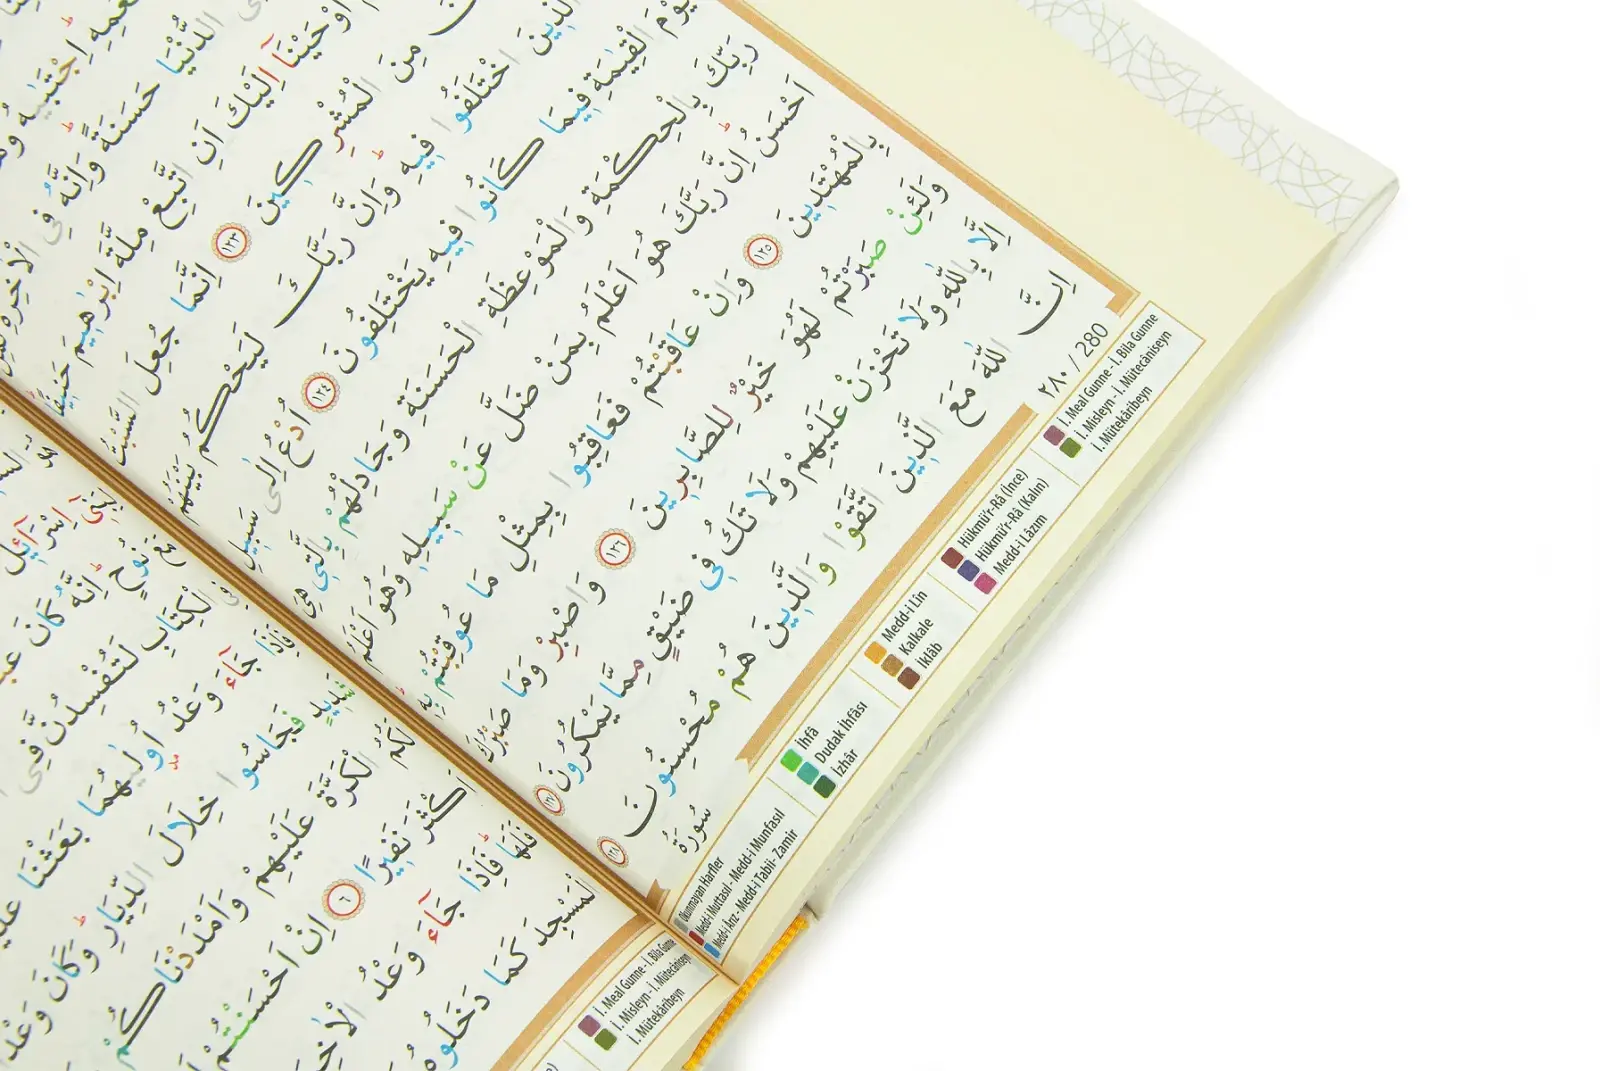 اِجْتَبٰيهُ
الدُّنْيَا حَسَنَةً وَاِنَّهُ فِى الْاٰخِرَةِ
اَوْحَيْنَٓا اِلَيْكَ اَنِ اتَّبِعْ مِلَّةَ اِبْرٰهِيمَ حَنِيفًا
مِنَ الْمُشْرِكِينَ ١٢٣ اِنَّمَا جُعِلَ السَّبْتُ
الَّذِينَ اخْتَلَفُوا فِيهِ وَاِنَّ رَبَّكَ لَيَحْكُمُ بَيْنَهُمْ
يَوْمَ الْقِيٰمَةِ فِيمَا كَانُوا فِيهِ يَخْتَلِفُونَ ١٢٤ اُدْعُ اِلٰى سَبِيلِ
رَبِّكَ بِالْحِكْمَةِ وَالْمَوْعِظَةِ الْحَسَنَةِ وَجَادِلْهُمْ بِالَّتِى هِىَ
اَحْسَنُ اِنَّ رَبَّكَ هُوَ اَعْلَمُ بِمَنْ ضَلَّ عَنْ سَبِيلِهِ وَهُوَ اَعْلَمُ
بِالْمُهْتَدِينَ ١٢٥ وَاِنْ عَاقَبْتُمْ فَعَاقِبُوا بِمِثْلِ مَا عُوقِبْتُمْ بِهِ
وَلَئِنْ صَبَرْتُمْ لَهُوَ خَيْرٌ لِلصَّابِرِينَ ١٢٦ وَاصْبِرْ وَمَا صَبْرُكَ
اِلَّا بِاللّٰهِ وَلَا تَحْزَنْ عَلَيْهِمْ وَلَا تَكُ فِى ضَيْقٍ مِمَّا يَمْكُرُونَ ١٢٧
اِنَّ اللّٰهَ مَعَ الَّذِينَ اتَّقَوْا وَالَّذِينَ هُمْ مُحْسِنُونَ ١٢٨
سُورَةُ
٢٨٠ / 280
Okunmayan Harfler
Medd-i Muttasıl - Medd-i Munfasıl
Medd-i Arız - Medd-i Tabii- Zamir
İhfâ
Dudak İhfâsı
İzhâr
Medd-i Lîn
Kalkale
İklâb
Hükmü'r-Râ (İnce)
Hükmü'r-Râ (Kalın)
Medd-i Lâzım
İ. Meal Gunne - İ. Bila Gunne
İ. Misleyn - İ. Mütecâniseyn
İ. Mütekâribeyn
لِبَنِٓى اِسْرَٓائِلَ
مَعَ نُوحٍ اِنَّهُ كَانَ
فِى الْكِتَابِ لَتُفْسِدُنَّ فِى
فَاِذَا جَٓاءَ وَعْدُ اُولٰيهُمَا بَعَثْنَا
شَدِيدٍ فَجَاسُوا خِلَالَ الدِّيَارِ وَكَانَ وَعْدًا
لَكُمُ الْكَرَّةَ عَلَيْهِمْ وَاَمْدَدْنَاكُمْ
اَكْثَرَ نَفِيرًا ٦ اِنْ اَحْسَنْتُمْ
فَلَهَا فَاِذَا جَٓاءَ وَعْدُ الْاٰخِرَةِ
الْمَسْجِدَ كَمَا دَخَلُوهُ
İ. Meal Gunne - İ. Bila Gunne
İ. Misleyn - İ. Mütecâniseyn
İ. Mütekâribeyn